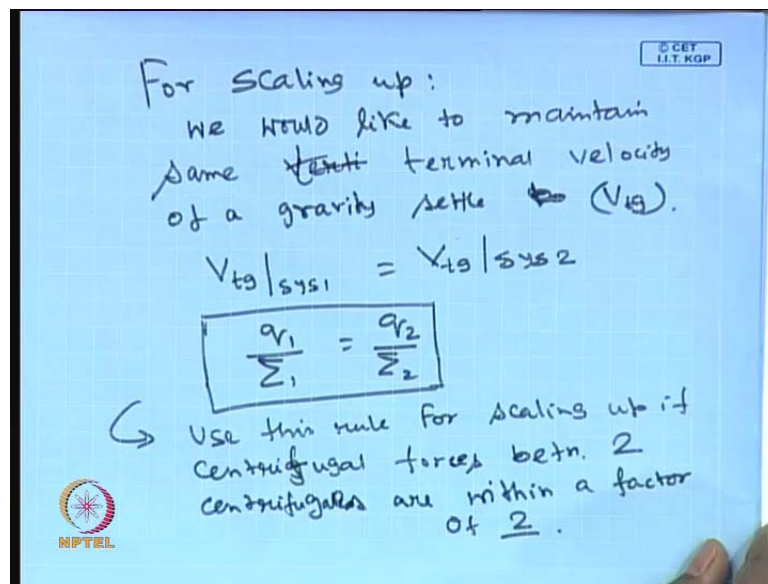 © CET
I.I.T. KGP
For scaling up:
we would like to maintain
same terminal velocity
of a gravity settle (Vtg).
Vtg|sys1 = Vtg|sys2
q1/Σ1 = q2/Σ2
↳ Use this rule for scaling up if
centrifugal forces betn. 2
centrifugals are within a factor
of 2.
NPTEL